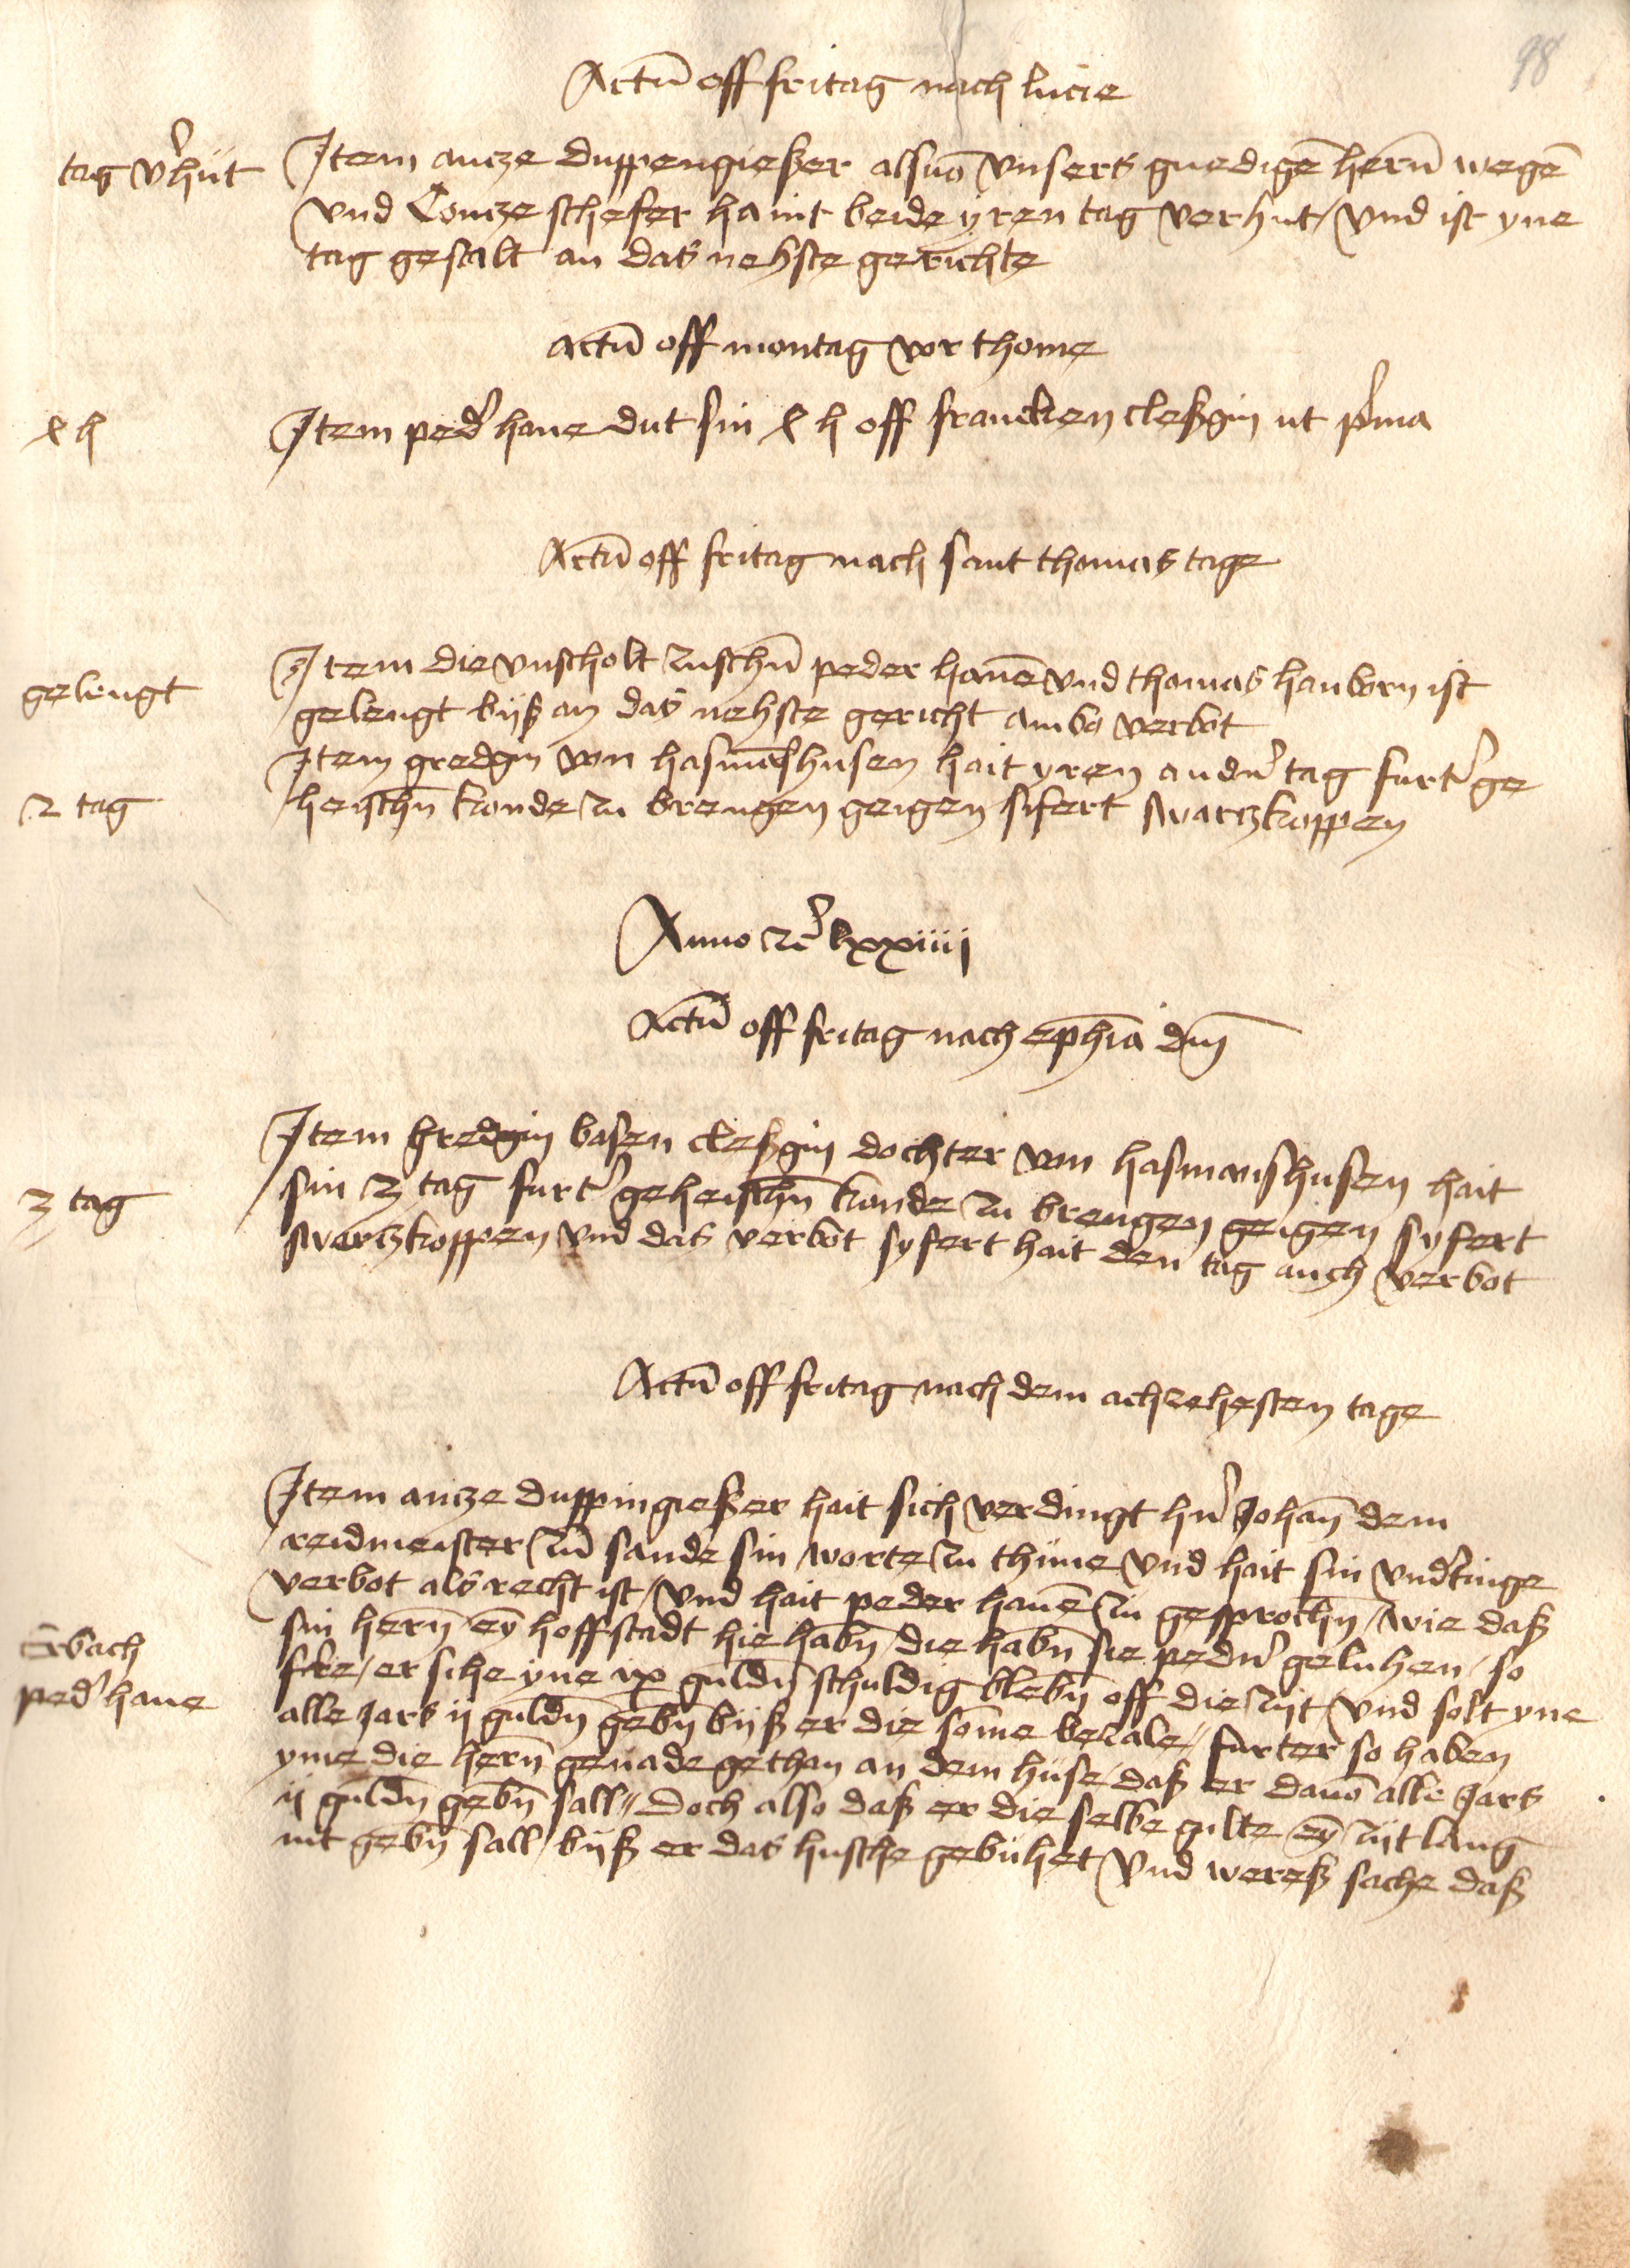 98
Actu͞ off fritag nach lucie
tag v̾hut
Item antze duppengießer als von vnsers gnedige͞ hern͞ wege͞
vnd Contze schefer haint beide yren tag verhut / vnd ist yne
tag gestalt an das nehste gerichte
actu͞ off montag vor thome
Item ped̾ hane dut sin h off francken cleßgin ut p̾ma
Actu͞ off fritag nach sant thomas tage
gelengt
Item die vnscholt zusch͞n peder hane͞ vnd thomas hanborn ist
gelengt byß an das nehste gericht ambo verbot
2 tag
Item gredgin von hasma͞shusen hait yren andn̾ tag furt̾ ge
heisch͞n konde zu brengen geigen sifert swartzkoppen
Anno 2c̾ lxxiiij
Actu͞ off fritag nach eph͞ia dn͞i
3 tag
Item gredgin basen cleßgin dochter von hasmanshusen hait
sin 3 tag furt̾ geheisch͞n konde zu brengen geigen syfert
swartzkoppen vnd das verbot syfert hait den tag auch verbot
Actu͞ off fritag nach dem achzehesten tage
Item antze duppingießer hait sich verdingt hn̾ Johan͞ dem
reidmeister zu͞ sande sin worte zu thune vnd hait sin vnd̾tinge
verbot als recht ist / vnd hait peder hane͞ zu gesproch͞n / wie daß
Erbach
ped̾ hane
sin hern͞ ey͞ hoffstadt hie hab͞n / die hab͞n sie pedn̾ geluhen / so
sie / er sihe yne ix guld͞n schuldig bleb͞n off die zijt / vnd solt yne
alle Jars ij guld͞n geb͞n byß er die so͞me bezale // furter so haben
yme die hern͞ genade gethan an dem huse / daß er dauo͞ alle Jars
ij guld͞n geb͞n sall // Doch also daß er die selbe gulte ey͞ zijt lang
nit geb͞n sall / byß er das husche gebuhet / Vnd wereß sache daß